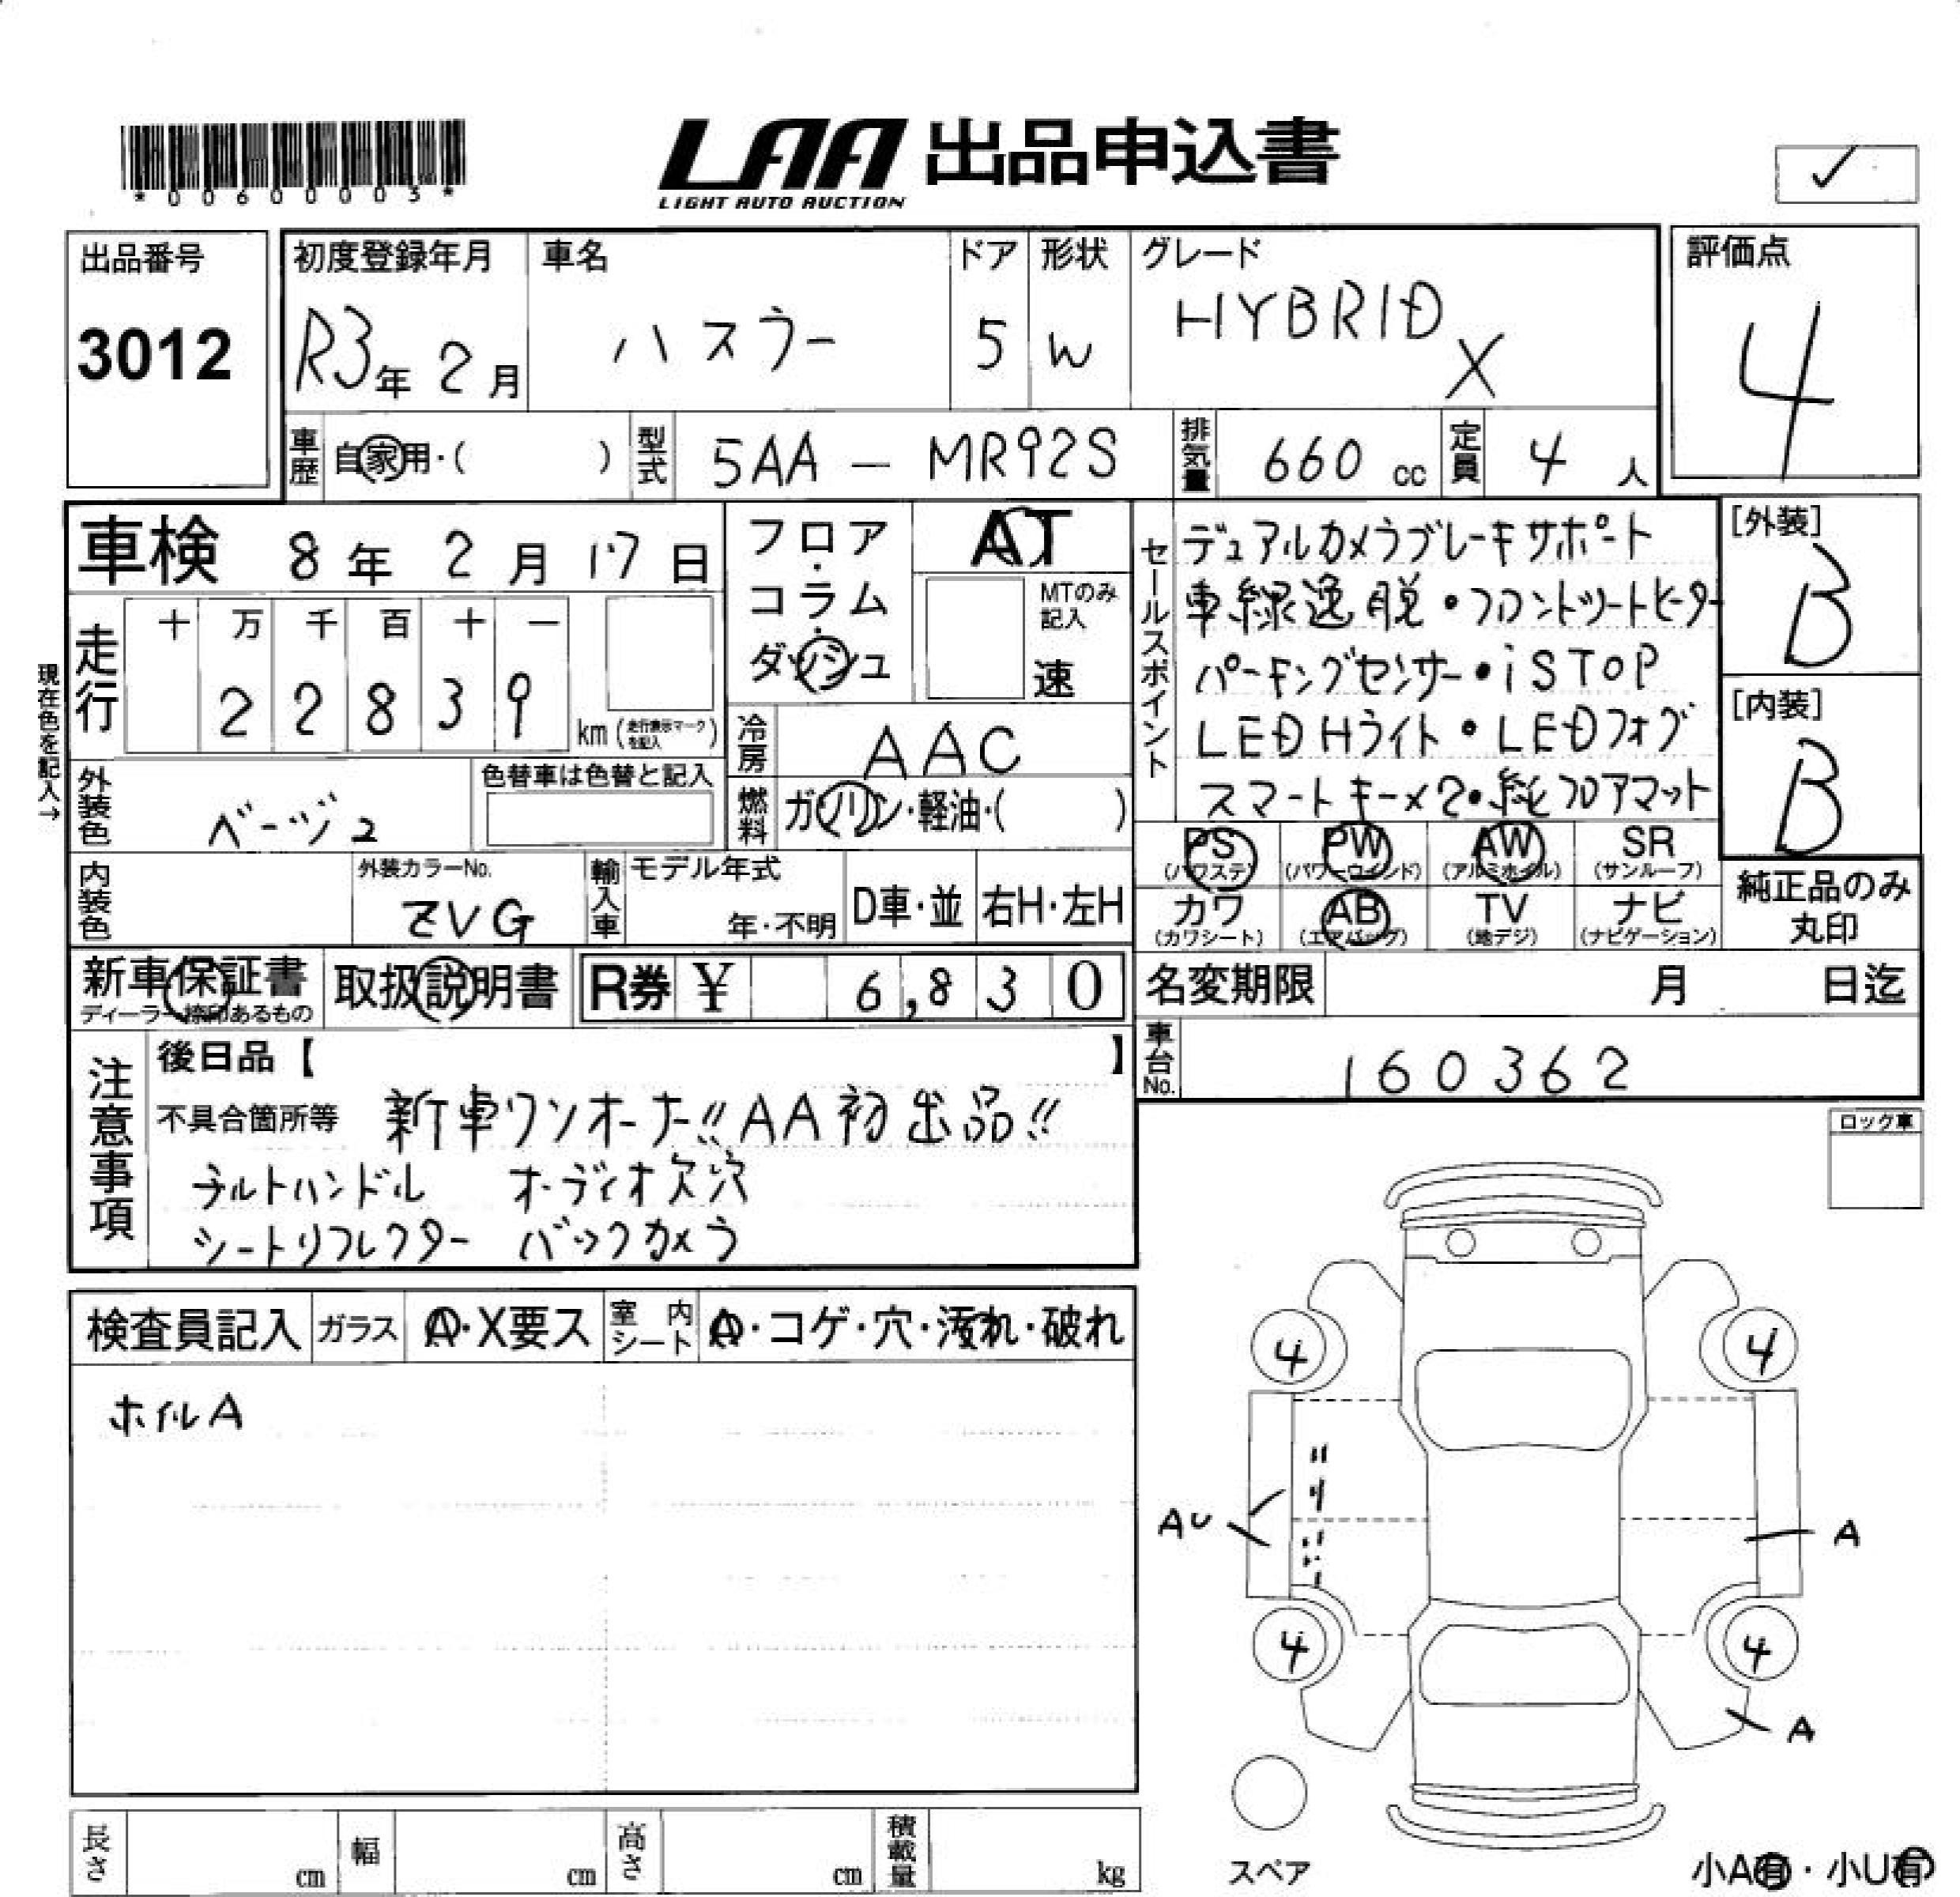 LAA 出品申込書
LIGHT AUTO AUCTION
*00600003*
✓
出品番号
3012
初度登録年月
R3年 2月
車名
ハスラー
ドア
5
形状
W
グレード
HYBRID X
評価点
4
車歴 自家用・( )
型式 5AA - MR92S
排気量 660 cc
定員 4 人
車検 8年 2月 17日
フロア・コラム・ダッシュ
AT
MTのみ記入
速
走行
十 万 千 百 十 一
2 2 8 3 9 km (走行表示マークを記入)
現在色を記入→
外装色 ベージュ
色替車は色替と記入
冷房 AAC
燃料 ガソリン・軽油・( )
内装色
外装カラーNo.
ZVG
輸入車 モデル年式
年・不明
D車・並
右H・左H
セールスポイント
デュアルカメラブレーキサポート
車線逸脱・フロントシートヒーター
パーキングセンサー・iSTOP
LED Hライト・LEDフォグ
スマートキー×2・純フロアマット
[外装]
B
[内装]
B
PS (パワステ) PW (パワーウインド) AW (アルミホイル) SR (サンルーフ)
カワ (カワシート) AB (エアバッグ) TV (地デジ) ナビ (ナビゲーション)
純正品のみ丸印
新車保証書
ディーラー捺印あるもの
取扱説明書
R券 ¥ 6,830
名変期限 月 日迄
車台No. 160362
注意事項
後日品【 】
不具合箇所等 新車ワンオーナー!! AA初出品!!
チルトハンドル オーディオ欠穴
シートリフレクター バックカメラ
ロック車
検査員記入 ガラス A・X要ス 室内シート A・コゲ・穴・汚れ・破れ
ホイルA
4 4
AU A
4 4
A
スペア
小A有・小U有
長さ cm 幅 cm 高さ cm 積載量 kg